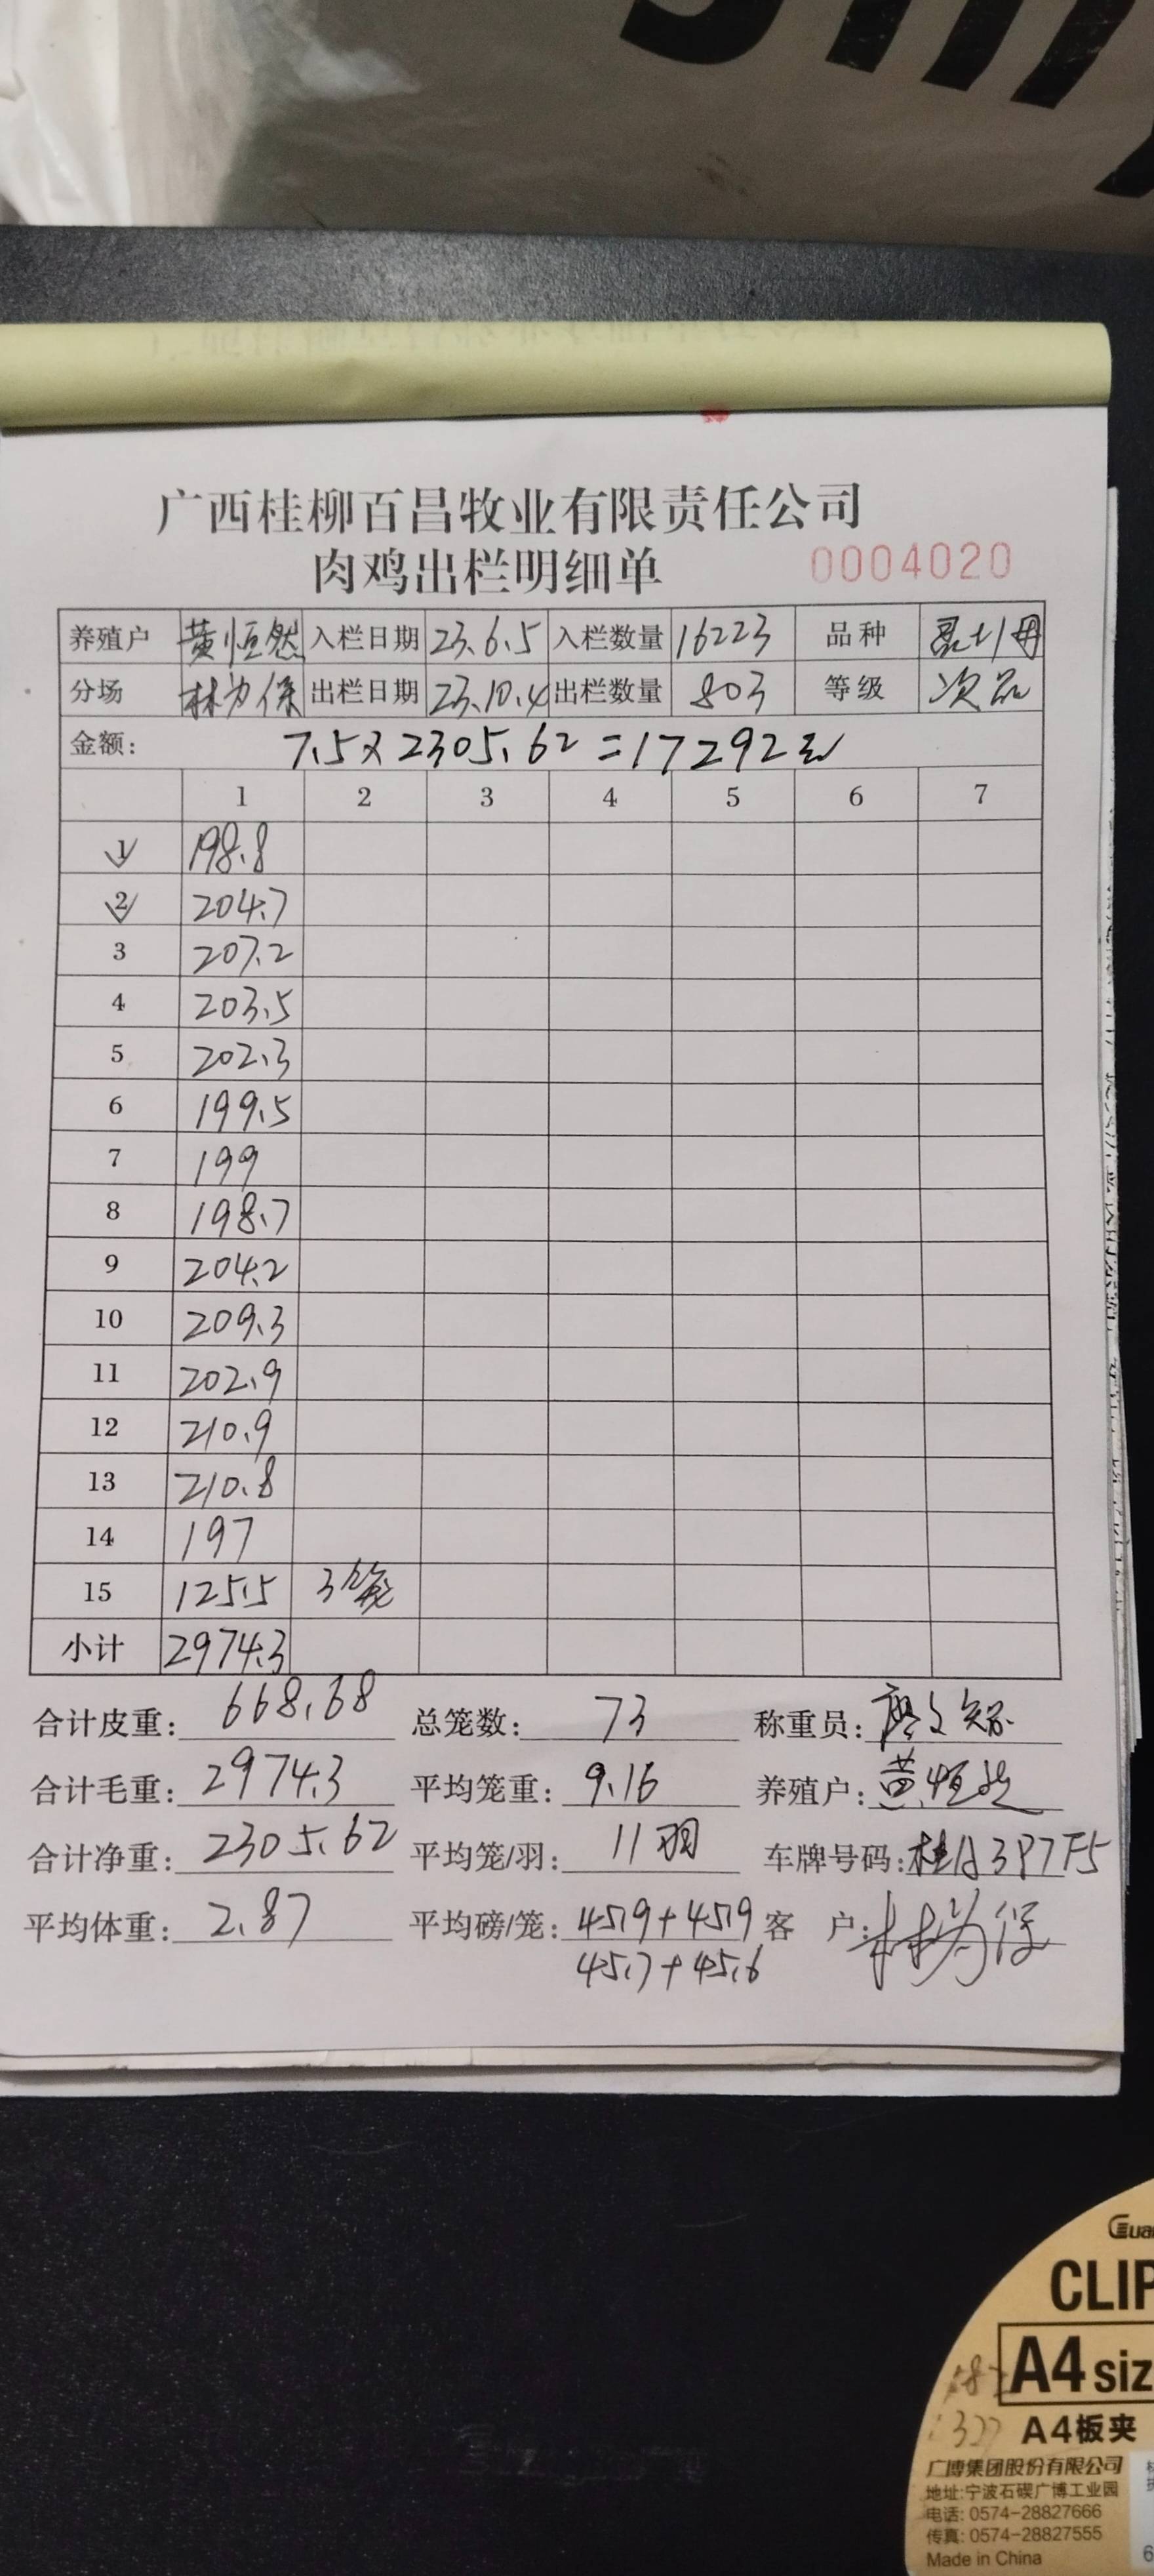 广西桂柳百昌牧业有限责任公司
肉鸡出栏明细单 0004020
养殖户 黄恒然 入栏日期 23.6.5 入栏数量 16223 品种
分场 林为保 出栏日期 23.10.4 出栏数量 803 等级 次品
金额: 7.5×2305.62=17292元
1 2 3 4 5 6 7
1 198.8
2 204.7
3 207.2
4 203.5
5 202.3
6 199.5
7 199
8 198.7
9 204.2
10 209.3
11 202.9
12 210.9
13 210.8
14 197
15 125.5 3笼
小计 2974.3
合计皮重: 668.68 总笼数: 73 称重员:
合计毛重: 2974.3 平均笼重: 9.16 养殖户: 黄恒然
合计净重: 2305.62 平均笼/羽: 11羽 车牌号码: 桂A3P7F5
平均体重: 2.87 平均磅/笼: 45.9+45.9 客 户: 林为保
45.7+45.6
CLIP
A4 siz
327
A4板夹
广博集团股份有限公司
地址:宁波石碶广博工业园
电话: 0574-28827666
传真: 0574-28827555
Made in China